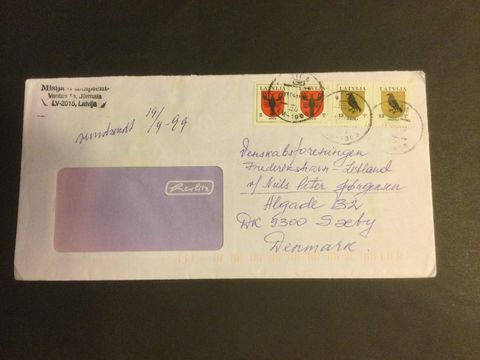 Ventas 1a, Jūrmala
LV-2015, Latvija
LATVIJA LATVIJA LATVIJA LATVIJA
19/
4-99
Berlitz
Venskabsforeningen
Frederikshavn - Letland
v/ Nils Peter Jørgensen
Algade B2
DK 9300 Sæby
Denmark.